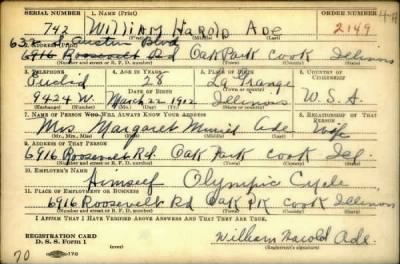 SERIAL NUMBER 1. NAME (Print) ORDER NUMBER
742 William Harold Ade 2149
(First) (Middle) (Last)
632 S Austin Blvd
6916 Roosevelt Rd Oak Park Cook Illinois
3. TELEPHONE 4. AGE IN YEARS 5. PLACE OF BIRTH 6. COUNTRY OF CITIZENSHIP
Euclid 28 La Grange
DATE OF BIRTH (Town or county)
9424 W. March 22 1912 Illinois U.S.A.
(Exchange) (Number) (Mo.) (Day) (Yr.) (State or country)
7. NAME OF PERSON WHO WILL ALWAYS KNOW YOUR ADDRESS 8. RELATIONSHIP OF THAT PERSON
Mrs. Margaret Ade Wife
(Mr., Mrs., Miss) (First) (Middle) (Last)
9. ADDRESS OF THAT PERSON
6916 Roosevelt Rd. Oak Park Cook Ill.
(Number and street) (Town) (County) (State)
10. EMPLOYER'S NAME
Himself Olympic Cycle
11. PLACE OF EMPLOYMENT OR BUSINESS
6916 Roosevelt Rd Oak Pk Cook Illinois
(Number and street or R. F. D. number) (Town) (County) (State)
I AFFIRM THAT I HAVE VERIFIED ABOVE ANSWERS AND THAT THEY ARE TRUE.
REGISTRATION CARD
D. S. S. Form 1 William Harold Ade.
70